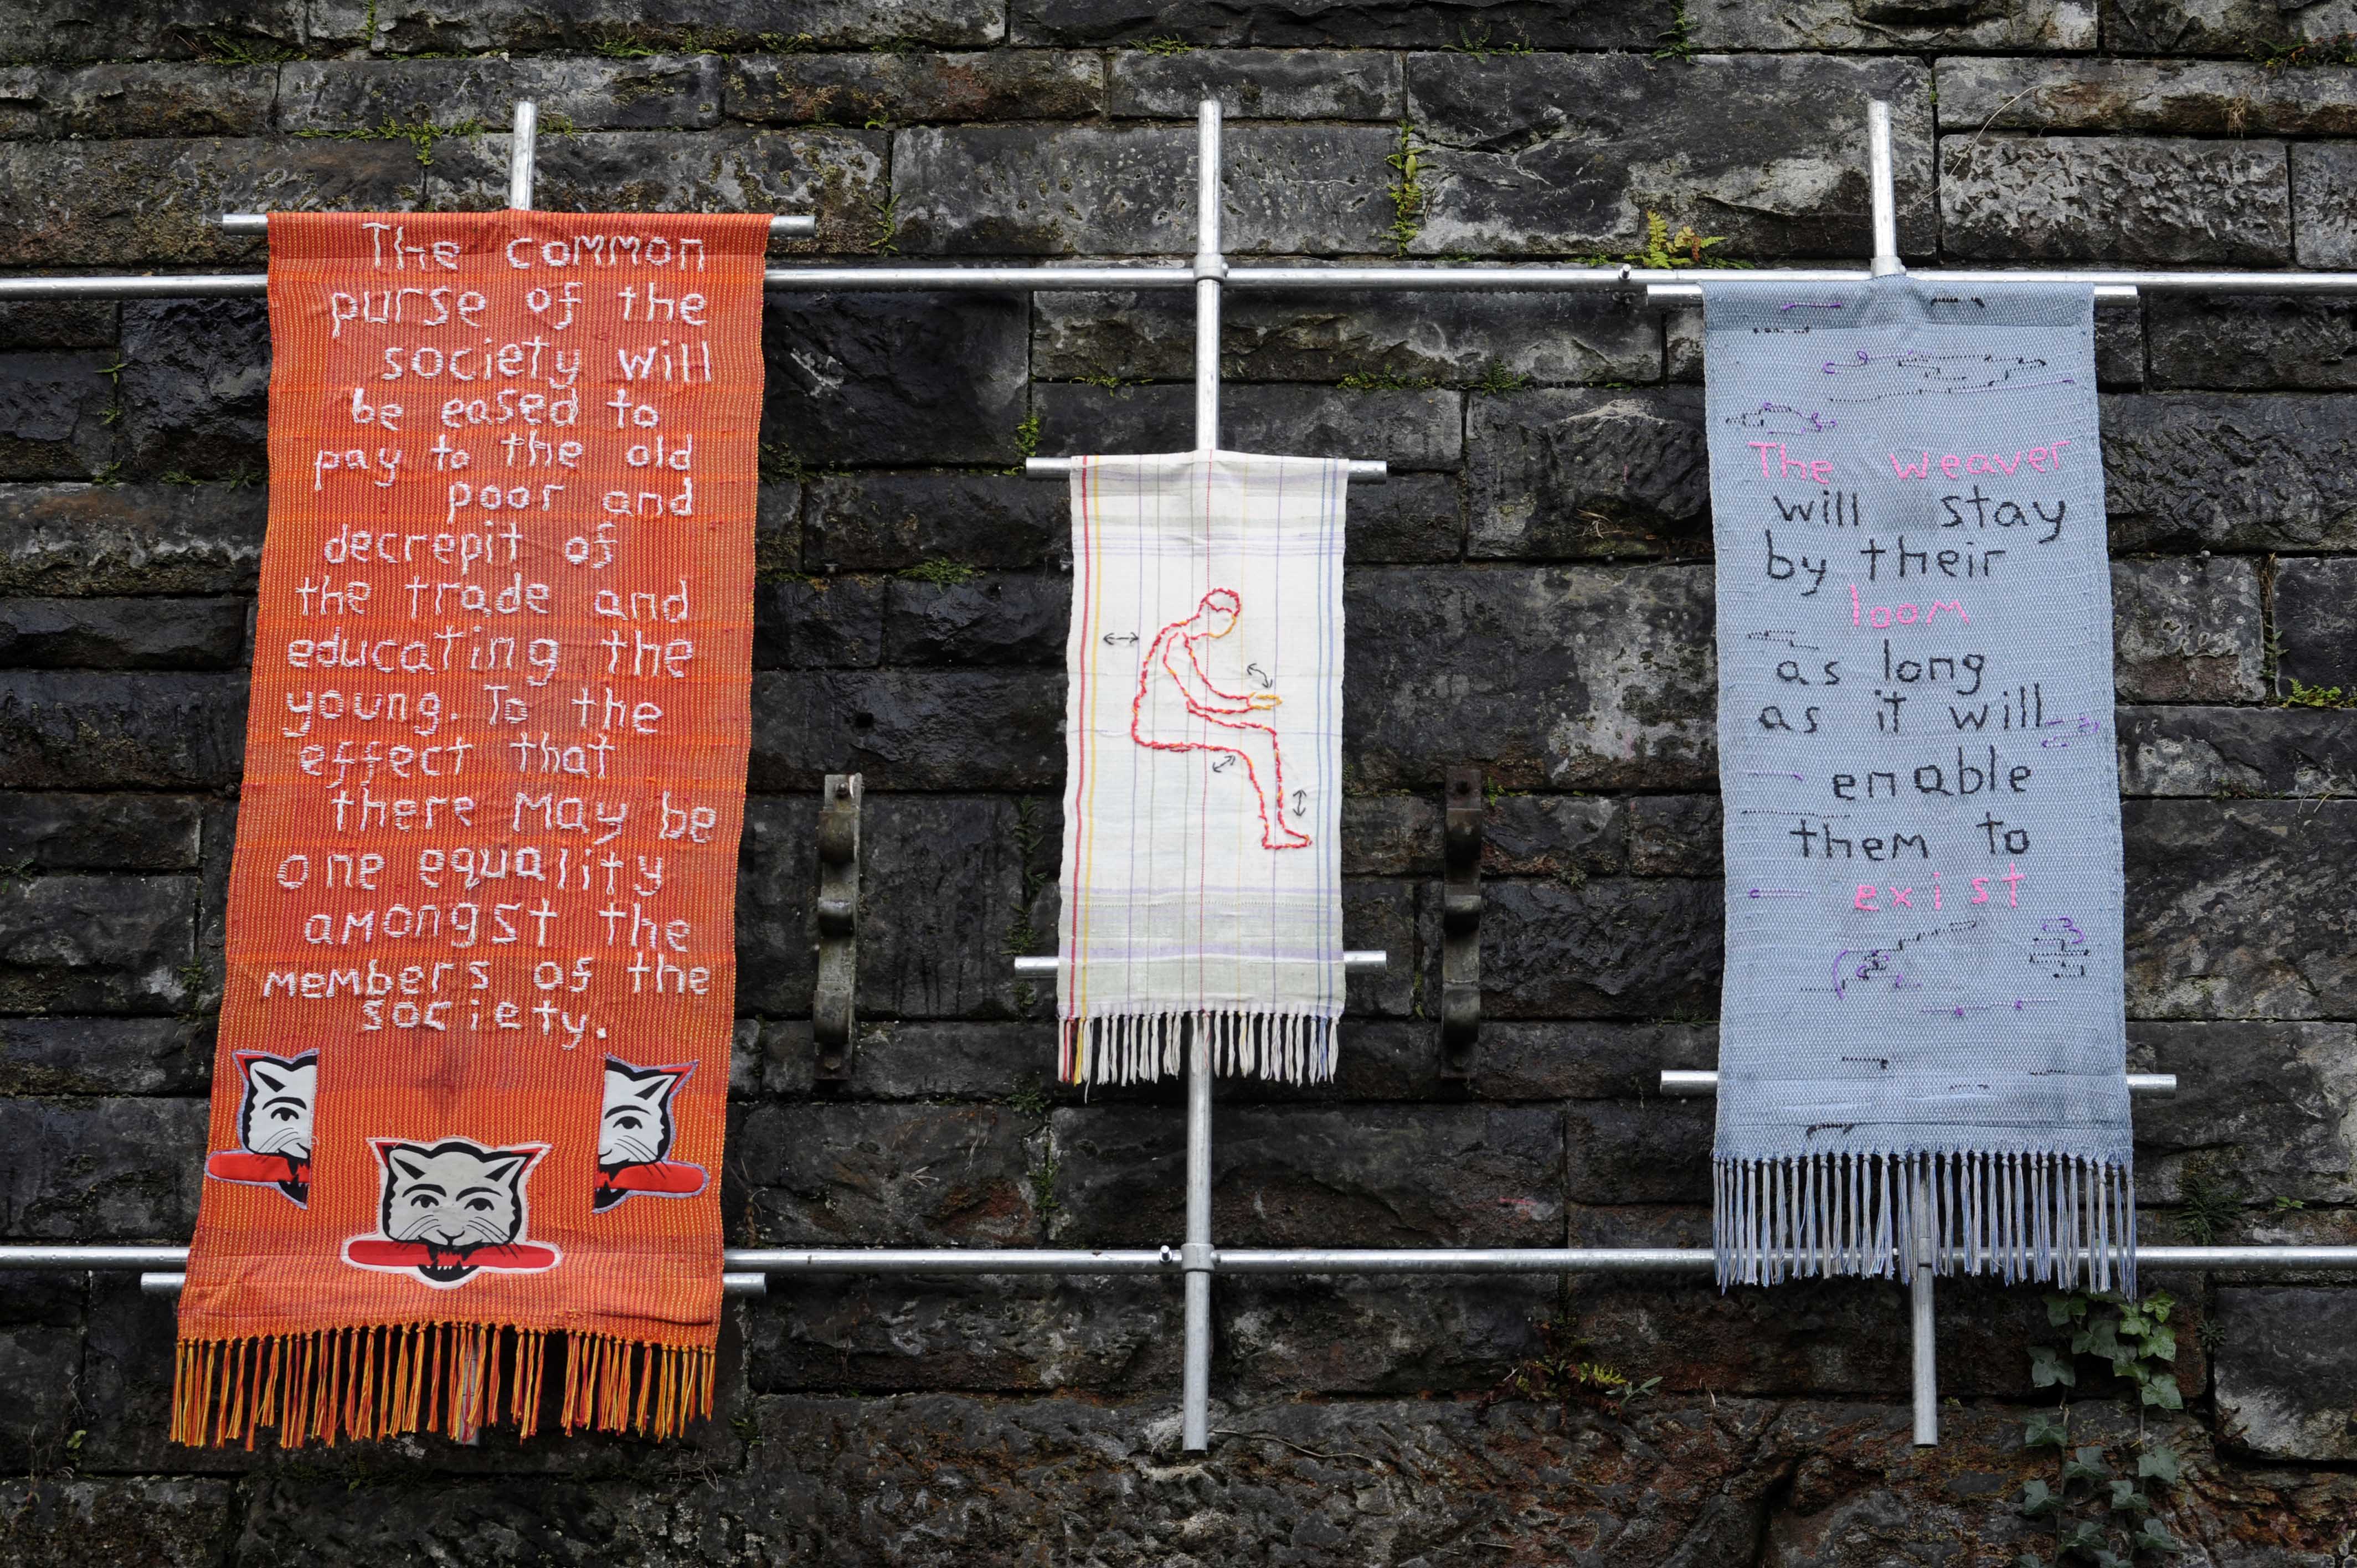 The common
purse of the
society will
be eased to
pay to the old
poor and
decrepit of
the trade and
educating the
young. To the
effect that
there may be
one equality
amongst the
members of the
society.
The weaver
will stay
by their
loom
as long
as it will
enable
them to
exist